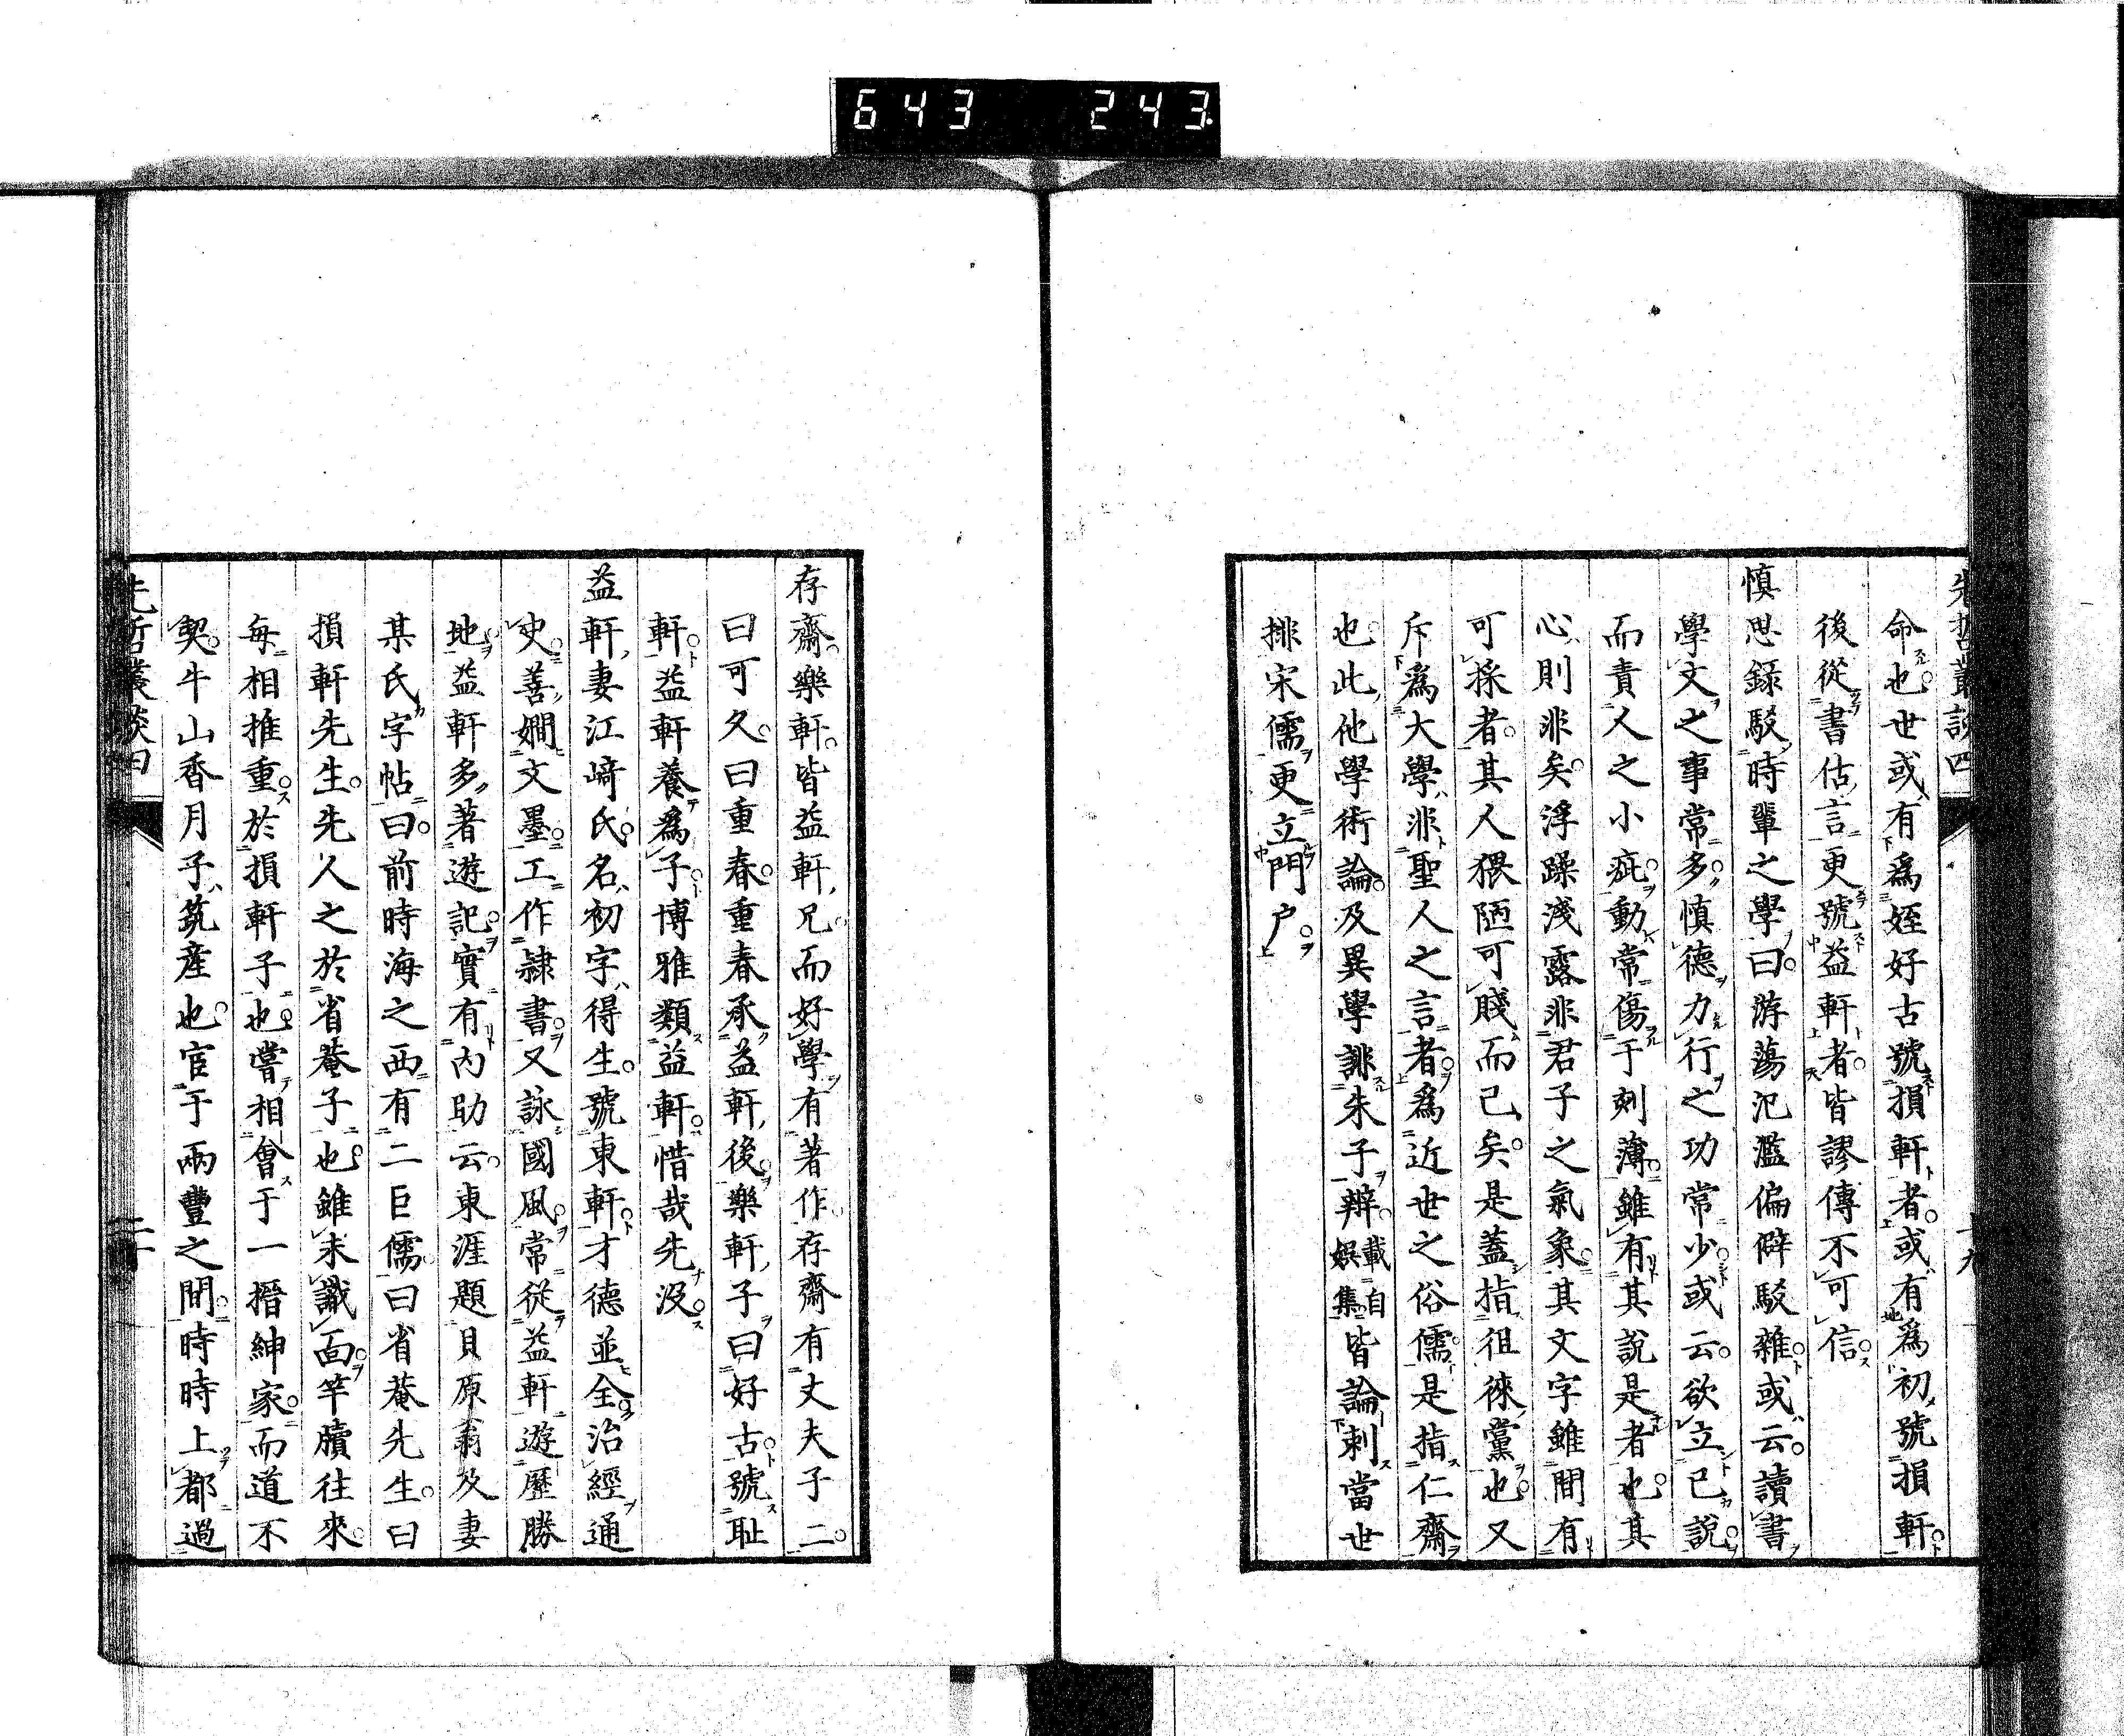 643 243
先哲叢談四
十九
命也世或有爲姪好古號損軒者或有爲初號損軒
後從書估言更號益軒者皆謬傳不可信
慎思録駁時輩之學曰游蕩氾濫偏僻駁雜或云讀書
學文之事常多慎德力行之功常少或云欲立已說
而責人之小疵動常傷于刻薄雖有其說是者也其
心則非矣浮躁淺露非君子之氣象其文字雖間有
可採者其人猥陋可賤而已矣是蓋指徂徠黨也又
斥爲大學非聖人之言者爲近世之俗儒是指仁齋
也此他學術論及異學誹朱子辯載自娯集皆論刺當世
排宋儒更立門户
存齋樂軒皆益軒兄而好學有著作存齋有丈夫子二
曰可久曰重春重春承益軒後樂軒子曰好古號耻
軒益軒養爲子博雅類益軒惜哉先沒
益軒妻江﨑氏名初字得生號東軒才德並全治經通
史善嫺文墨工作隷書又詠國風常從益軒遊歷勝
地益軒多著遊記實有內助云東涯題貝原翁及妻
某氏字帖曰前時海之西有二巨儒曰省菴先生曰
損軒先生先人之於省菴子也雖未識面竿牘往來
每相推重於損軒子也嘗相會于一搢紳家而道不
契牛山香月子筑產也官于兩豐之間時時上都過
先哲叢談四
二十